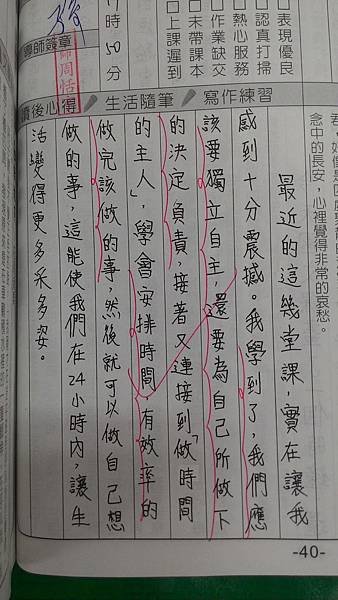 □表現優良
□認真打掃
□熱心服務
□作業缺交
□未帶課本
□上課遲到
時50分
導師簽章
讀後心得/生活隨筆/寫作練習
念中的長安，心裡覺得非常的哀愁。
最近的這幾堂課，實在讓我
感到十分震撼。我學到了，我們應
該要獨立自主，還要為自己所做下
的決定負責，接著又連接到做「時間
的主人」，學會安排時間，有效率的
做完該做的事，然後就可以做自己想
做的事，這能使我們在24小時內，讓生
活變得更多采多姿。
-40-